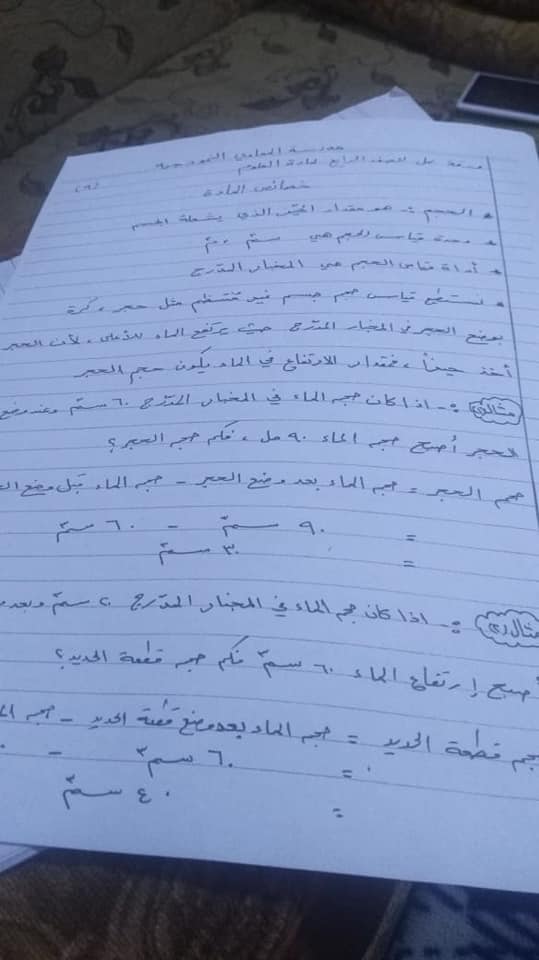 مدرسة المعلمين النموذجية
ورقة عمل للصف الرابع لمادة العلوم (٨)
خصائص المادة
• الحجم :- هو مقدار الحيّز الذي يشغله الجسم
• وحدة قياس الحجم هي سم٣ ، م٣
• أداة قياس الحجم هي المخبار المدرّج
• نستطيع قياس حجم جسم غير منتظم مثل حجر ، كرة
بوضع الحجر في المخبار المدرّج حيث يرتفع الماء للأعلى ، لأن الحجر
أخذ حيزاً ، فمقدار الارتفاع في الماء يكون حجم الحجر
مثال(١) :- اذا كان حجم الماء في المخبار المدرّج ٦٠ سم٣ وعند وضع
الحجر أصبح حجم الماء ٩٠ مل ، فكم حجم الحجر ؟
حجم الحجر = حجم الماء بعد وضع الحجر - حجم الماء قبل وضع
= ٩٠ سم٣ - ٦٠ سم٣
= ٣٠ سم٣
مثال(٢) :- اذا كان حجم الماء في المخبار المدرّج ٢٠ سم٣ وبعد
أصبح إرتفاع الماء ٦٠ سم٣ فكم حجم قطعة الحديد ؟
حجم قطعة الحديد = حجم الماء بعد وضع قطعة الحديد - حجم
= ٦٠ سم٣ -
= ٤٠ سم٣